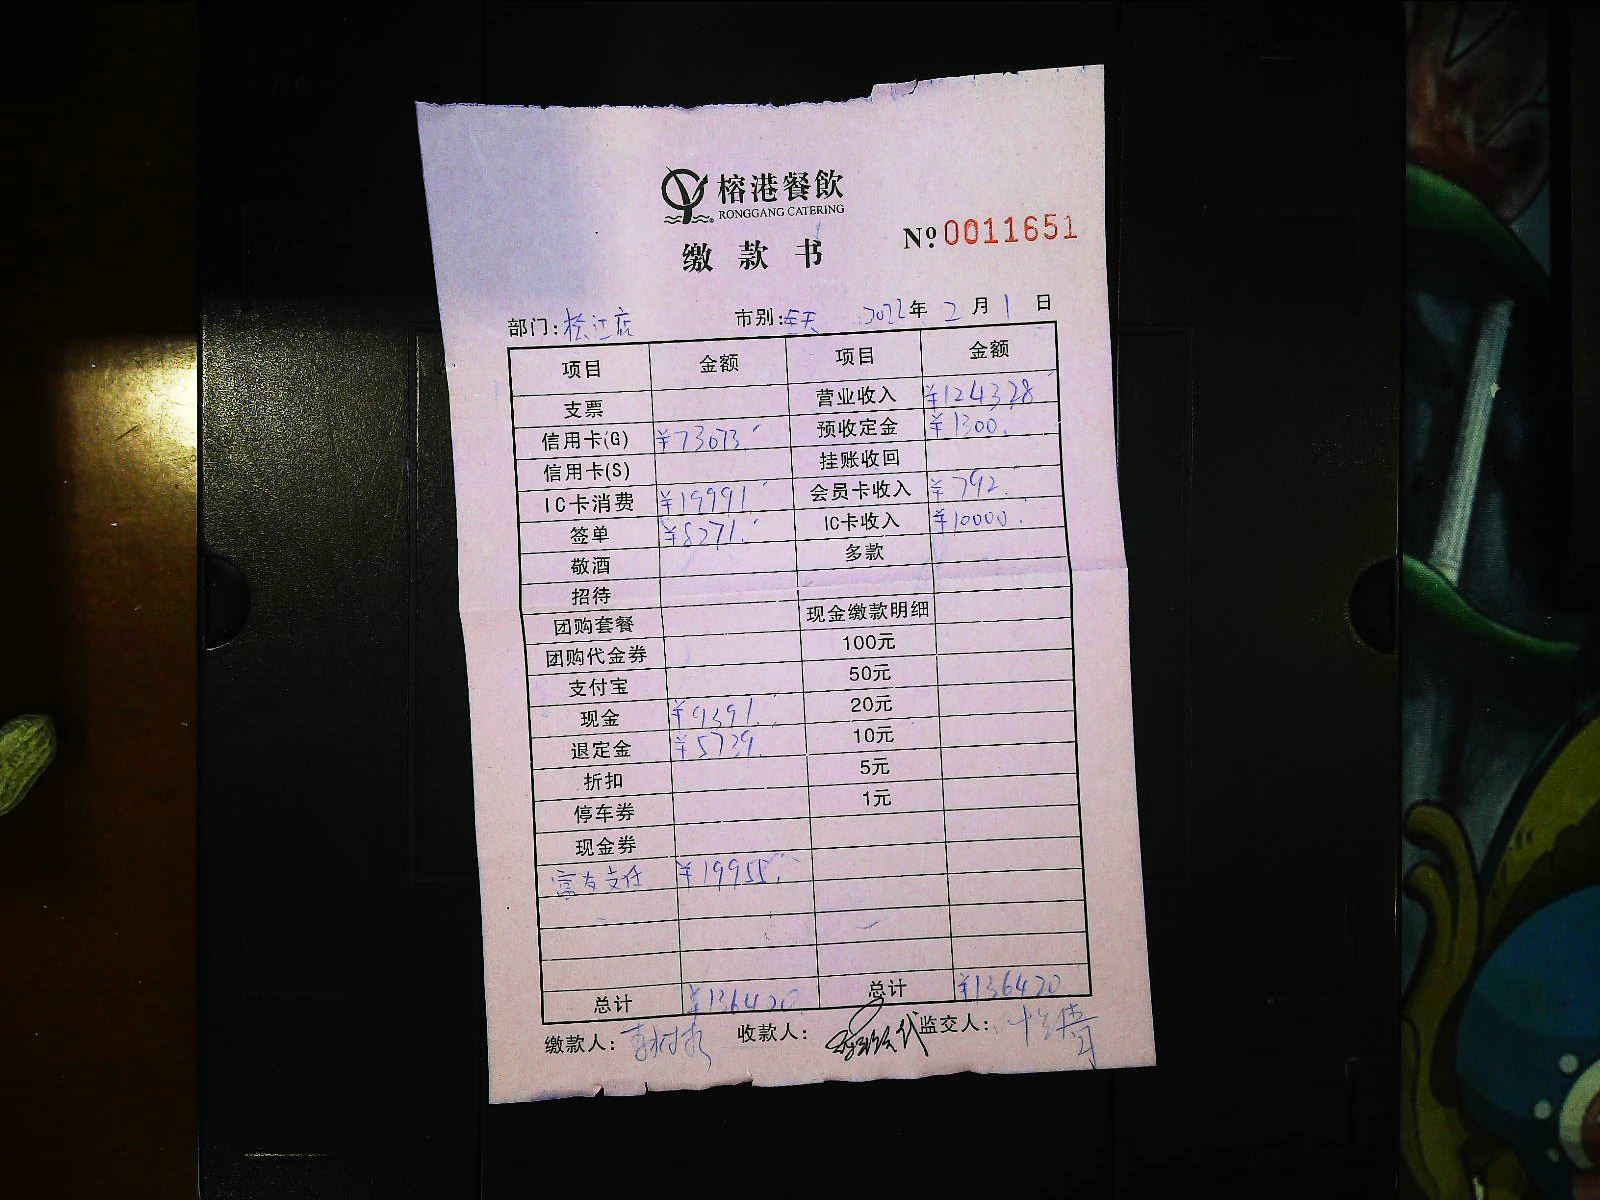 榕港餐飲
RONGGANG CATERING
缴款书
Nº 0011651
部门:松江店 市别:全天 2022年2月1日
项目 金额 项目 金额
支票 营业收入 ¥124328
信用卡(G) ¥73073. 预收定金 ¥1300.
信用卡(S) 挂账收回
IC卡消费 ¥19991 会员卡收入 ¥792.
签单 ¥8271. IC卡收入 ¥10000.
敬酒 多款
招待
团购套餐 现金缴款明细
团购代金券 100元
支付宝 50元
现金 ¥9391. 20元
退定金 ¥5739. 10元
折扣 5元
停车券 1元
现金券
富友支付 ¥19955.
总计 ¥136420 总计 ¥136420
缴款人: 收款人: 代 监交人: